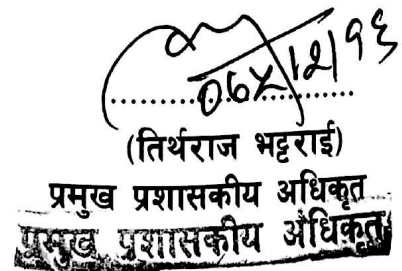 ०७५।१२।१६
(तिर्थराज भट्टराई)
प्रमुख प्रशासकीय अधिकृत
प्रमुख प्रशासकीय अधिकृत